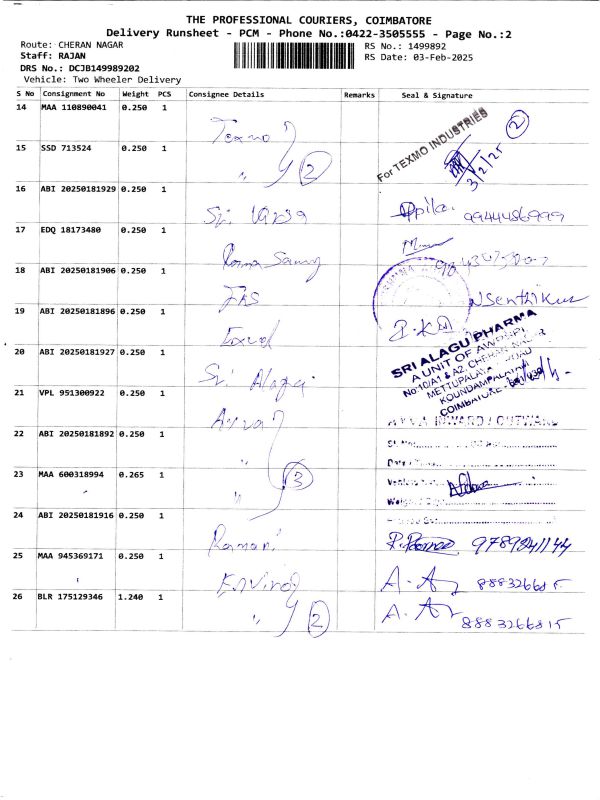 THE PROFESSIONAL COURIERS, COIMBATORE
Delivery Runsheet - PCM - Phone No.:0422-3505555 - Page No.:2
Route: CHERAN NAGAR
RS No.: 1499892
Staff: RAJAN
RS Date: 03-Feb-2025
DRS No.: DCJB149989202
Vehicle: Two Wheeler Delivery
S No Consignment No Weight PCS Consignee Details Remarks Seal & Signature
14 MAA 110890041 0.250 1 Texmo For TEXMO INDUSTRIES 2
15 SSD 713524 0.250 1 " 2 3/2/25
16 ABI 20250181929 0.250 1 Sri Varsa 9944486999
17 EDQ 18173480 0.250 1
18 ABI 20250181906 0.250 1 Nsenthilkum
19 ABI 20250181896 0.250 1
20 ABI 20250181927 0.250 1 Sri Alagu
SRI ALAGU PHARMA
A UNIT OF
No:10/A1 & A2, CHERAN NAGAR
METTUPALAYAM ROAD
KOUNDAMPALAYAM
COIMBATORE
21 VPL 951300922 0.250 1 INWARD / OUTWARD
22 ABI 20250181892 0.250 1 "
23 MAA 600318994 0.265 1 " 3
24 ABI 20250181916 0.250 1 Ramani 9789241144
25 MAA 945369171 0.250 1 Enviro 8883266815
26 BLR 175129346 1.240 1 " 2 8883266815